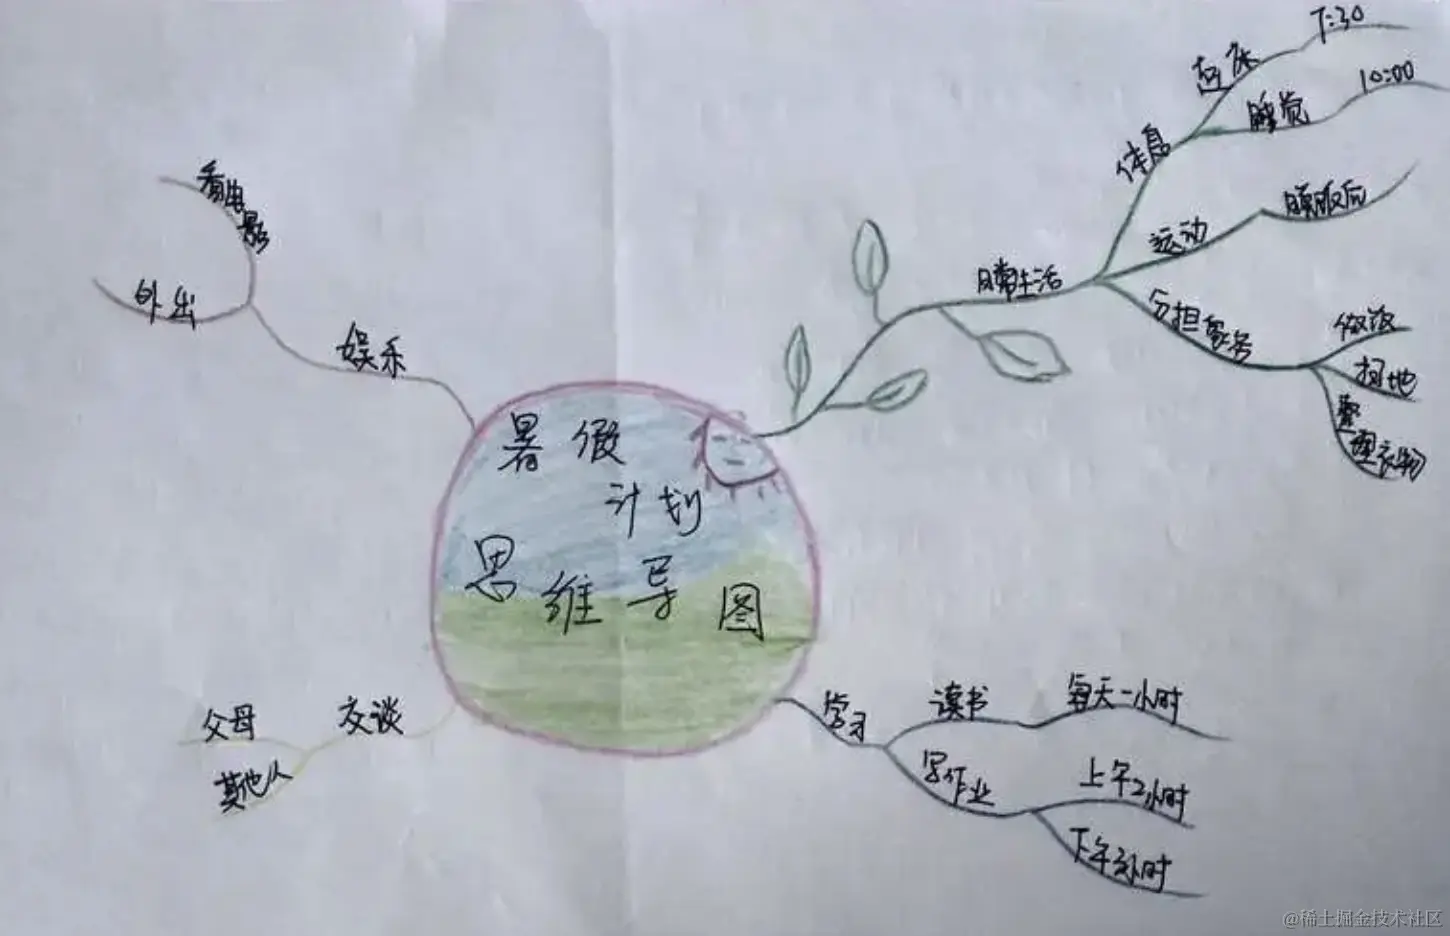 暑假
计划
思维导图
日常生活
休息
起床
7:30
睡觉
10:00
运动
晚饭后
分担家务
做饭
扫地
整理衣物
学习
读书
每天一小时
写作业
上午2小时
下午3小时
交谈
父母
其他人
娱乐
看电影
外出
@稀土掘金技术社区